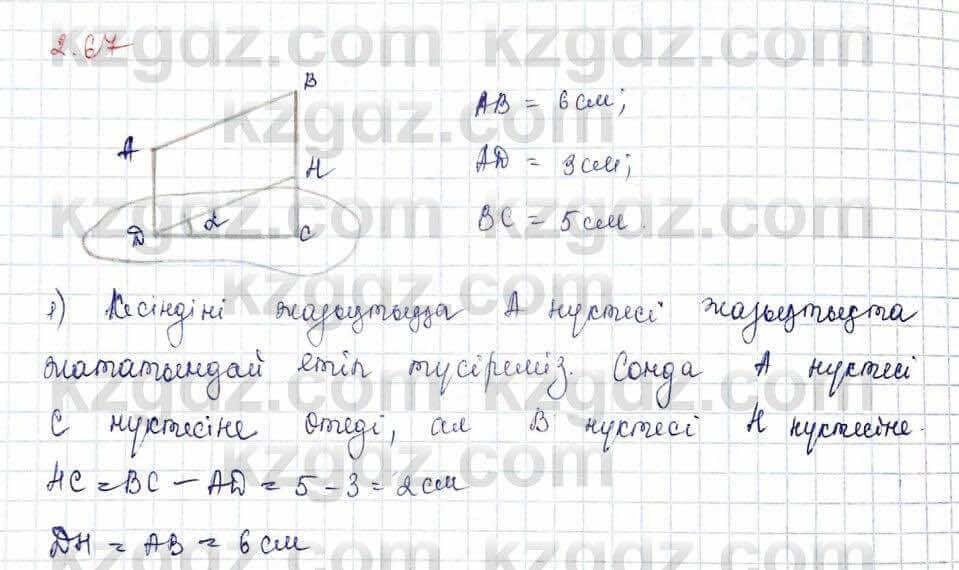 2.67
B
A
H
D
α
C
AB = 6 см;
AD = 3 см;
BC = 5 см.
1) Кесіндіні жазықтыққа A нүктесі жазықтықта
жататындай етіп түсіреміз. Сонда A нүктесі
C нүктесіне өтеді, ал B нүктесі H нүктесіне.
HC = BC - AD = 5 - 3 = 2 см
DH = AB = 6 см
kzgdz.com kzgdz.com
kzgdz.com
kzgdz.com kzgdz.com
kzgdz.com kzgdz.com
kzgdz.com kzgdz.com
kzgdz.com kzgdz.com
kzgdz.com kzgdz.com